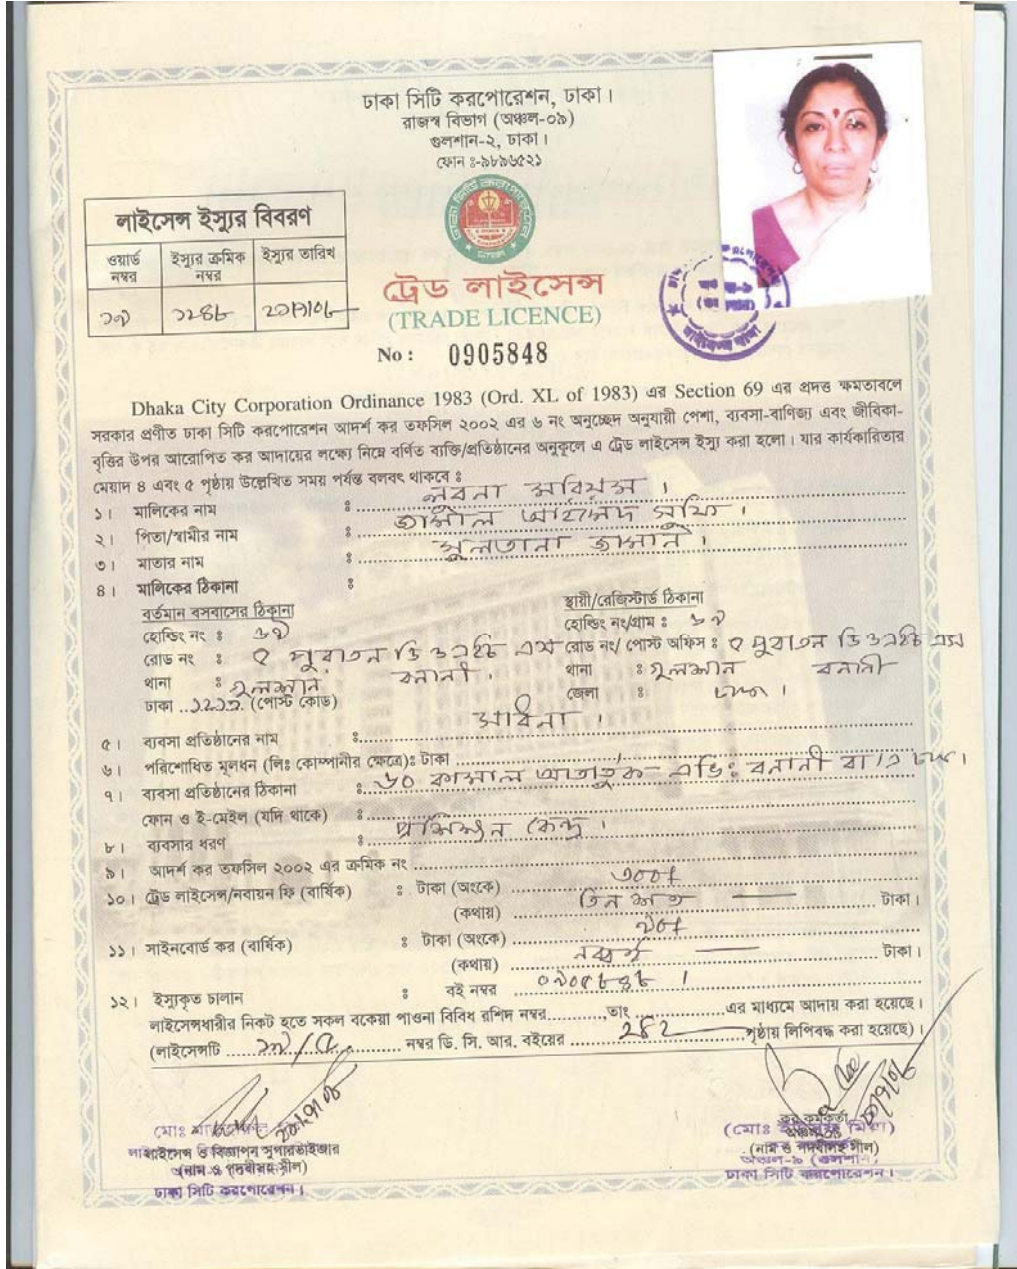 ঢাকা সিটি করপোরেশন, ঢাকা।
রাজস্ব বিভাগ (অঞ্চল-০৯)
গুলশান-২, ঢাকা।
ফোন ঃ-৯৮৯৬৫২১
লাইসেন্স ইস্যুর বিবরণ
ওয়ার্ড নম্বর ইস্যুর ক্রমিক নম্বর ইস্যুর তারিখ
১৯ ১২৪৮
ট্রেড লাইসেন্স
(TRADE LICENCE)
No : 0905848
Dhaka City Corporation Ordinance 1983 (Ord. XL of 1983) এর Section 69 এর প্রদত্ত ক্ষমতাবলে
সরকার প্রণীত ঢাকা সিটি করপোরেশন আদর্শ কর তফসিল ২০০২ এর ৬ নং অনুচ্ছেদ অনুযায়ী পেশা, ব্যবসা-বাণিজ্য এবং জীবিকা-
বৃত্তির উপর আরোপিত কর আদায়ের লক্ষ্যে নিম্নে বর্ণিত ব্যক্তি/প্রতিষ্ঠানের অনুকূলে এ ট্রেড লাইসেন্স ইস্যু করা হলো। যার কার্যকারিতার
মেয়াদ ৪ এবং ৫ পৃষ্ঠায় উল্লেখিত সময় পর্যন্ত বলবৎ থাকবে ঃ
১। মালিকের নাম ঃ লুবনা মরিয়ম।
২। পিতা/স্বামীর নাম ঃ
৩। মাতার নাম ঃ সুলতানা
৪। মালিকের ঠিকানা ঃ
বর্তমান বসবাসের ঠিকানা স্থায়ী/রেজিস্টার্ড ঠিকানা
হোল্ডিং নং ঃ হোল্ডিং নং/গ্রাম ঃ
রোড নং ঃ পুরাতন ডি ওএইচ এস রোড নং/ পোস্ট অফিস ঃ পুরাতন ডি ওএইচ এস
থানা ঃ গুলশান বনানী। থানা ঃ গুলশান বনানী
ঢাকা ..১২১৩. (পোস্ট কোড) জেলা ঃ ঢাকা।
৫। ব্যবসা প্রতিষ্ঠানের নাম ঃ সাধনা।
৬। পরিশোধিত মূলধন (লিঃ কোম্পানীর ক্ষেত্রে)ঃ টাকা
৭। ব্যবসা প্রতিষ্ঠানের ঠিকানা ঃ ৬০ কামাল আতাতুর্ক এভিঃ বনানী বা/এ ঢাকা।
ফোন ও ই-মেইল (যদি থাকে) ঃ
৮। ব্যবসার ধরণ ঃ প্রশিক্ষন কেন্দ্র।
৯। আদর্শ কর তফসিল ২০০২ এর ক্রমিক নং
১০। ট্রেড লাইসেন্স/নবায়ন ফি (বার্ষিক) ঃ টাকা (অংকে) ৩০০/
(কথায়) তিন শত টাকা।
১১। সাইনবোর্ড কর (বার্ষিক) ঃ টাকা (অংকে) ৯০/
(কথায়) নব্বই টাকা।
১২। ইস্যুকৃত চালান ঃ বই নম্বর ০৯০৫৮৪৮।
লাইসেন্সধারীর নিকট হতে সকল বকেয়া পাওনা বিবিধ রশিদ নম্বর............,তাং ....................এর মাধ্যমে আদায় করা হয়েছে।
(লাইসেন্সটি নম্বর ডি. সি. আর. বইয়ের পৃষ্ঠায় লিপিবদ্ধ করা হয়েছে)।
মোঃ
লাইসেন্স ও বিজ্ঞাপন সুপারভাইজার
(নাম ও পদবীসহ সীল)
ঢাকা সিটি করপোরেশন।
কর কর্মকর্তা
(মোঃ মিঞা)
(নাম ও পদবীসহ সীল)
অঞ্চল-৯ (গুলশান)
ঢাকা সিটি করপোরেশন।